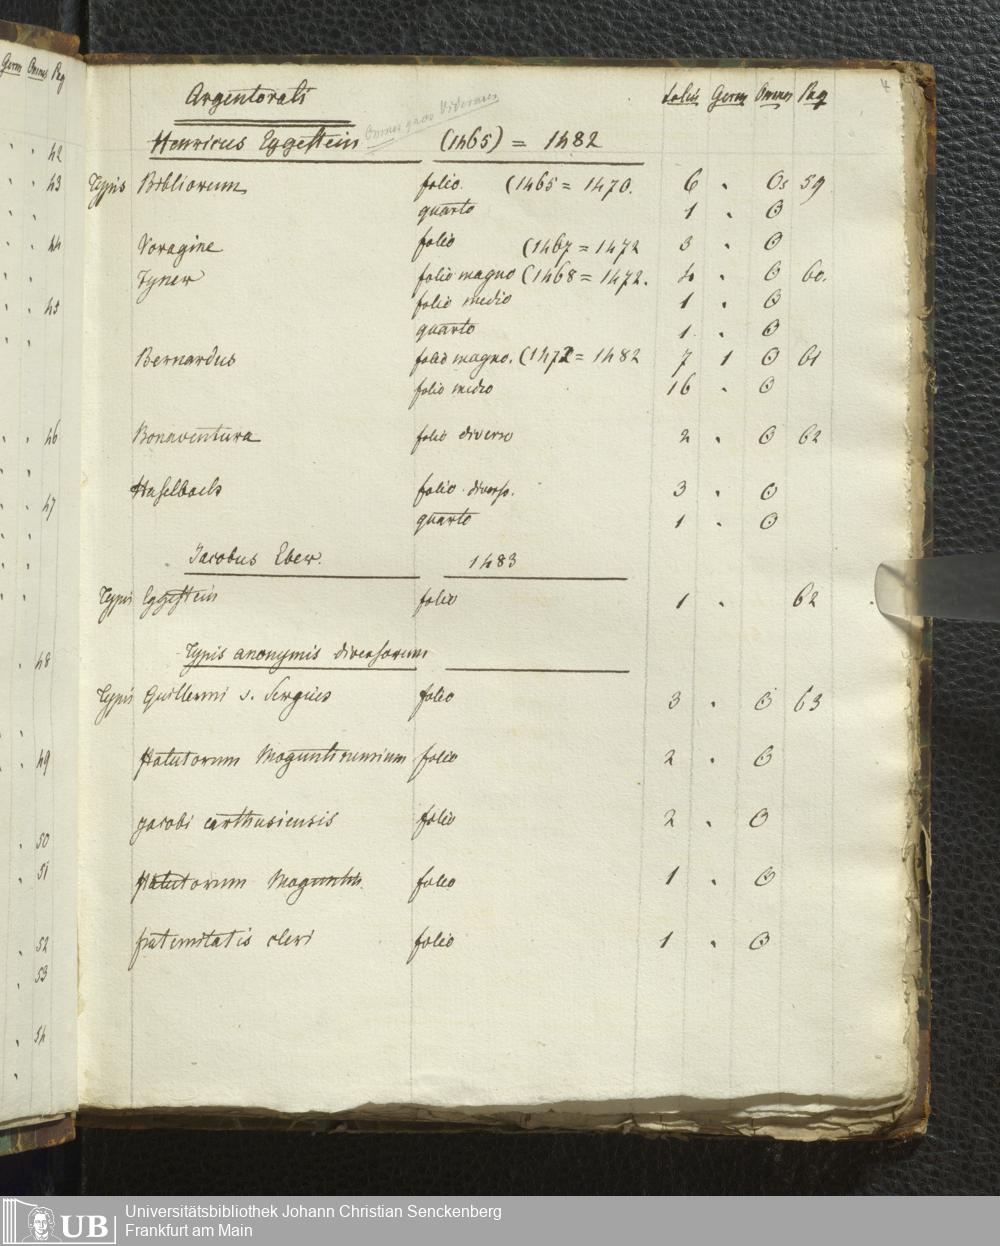 Germ Omnes Pag
42
43
44
45
46
47
48
49
50
51
52
53
54
4
Argentorati Latin Germ Omnes Pag
Omnes quos vidimus
Henricus Eggestein (1465) = 1482
Typis Bibliorum folio. (1465 = 1470. 6 . Os 59
quarto 1 . O
Voragine folio (1467 = 1472 3 . O
Tyner folio magno (1468 = 1472. 4 . O 60.
folio medio 1 . O
quarto 1 . O
Bernardus folio magno. (1472 = 1482 7 1 O 61
folio medio 16 . O
Bonaventura folio diverso 2 . O 62
Haselbach folio divers. 3 . O
quarto 1 . O
Jacobus Eber. 1483
Typis Eggestein folio 1 . 62
Typis anonymis diversorum
Typis Guillermi s. Sergius folio 3 . O 63
Statutorum Moguntinumium folio 2 . O
Jacobi carthusiensis folio 2 . O
Statutorum Moguntin. folio 1 . O
fraternitatis cleri folio 1 . O
UB
Universitätsbibliothek Johann Christian Senckenberg
Frankfurt am Main